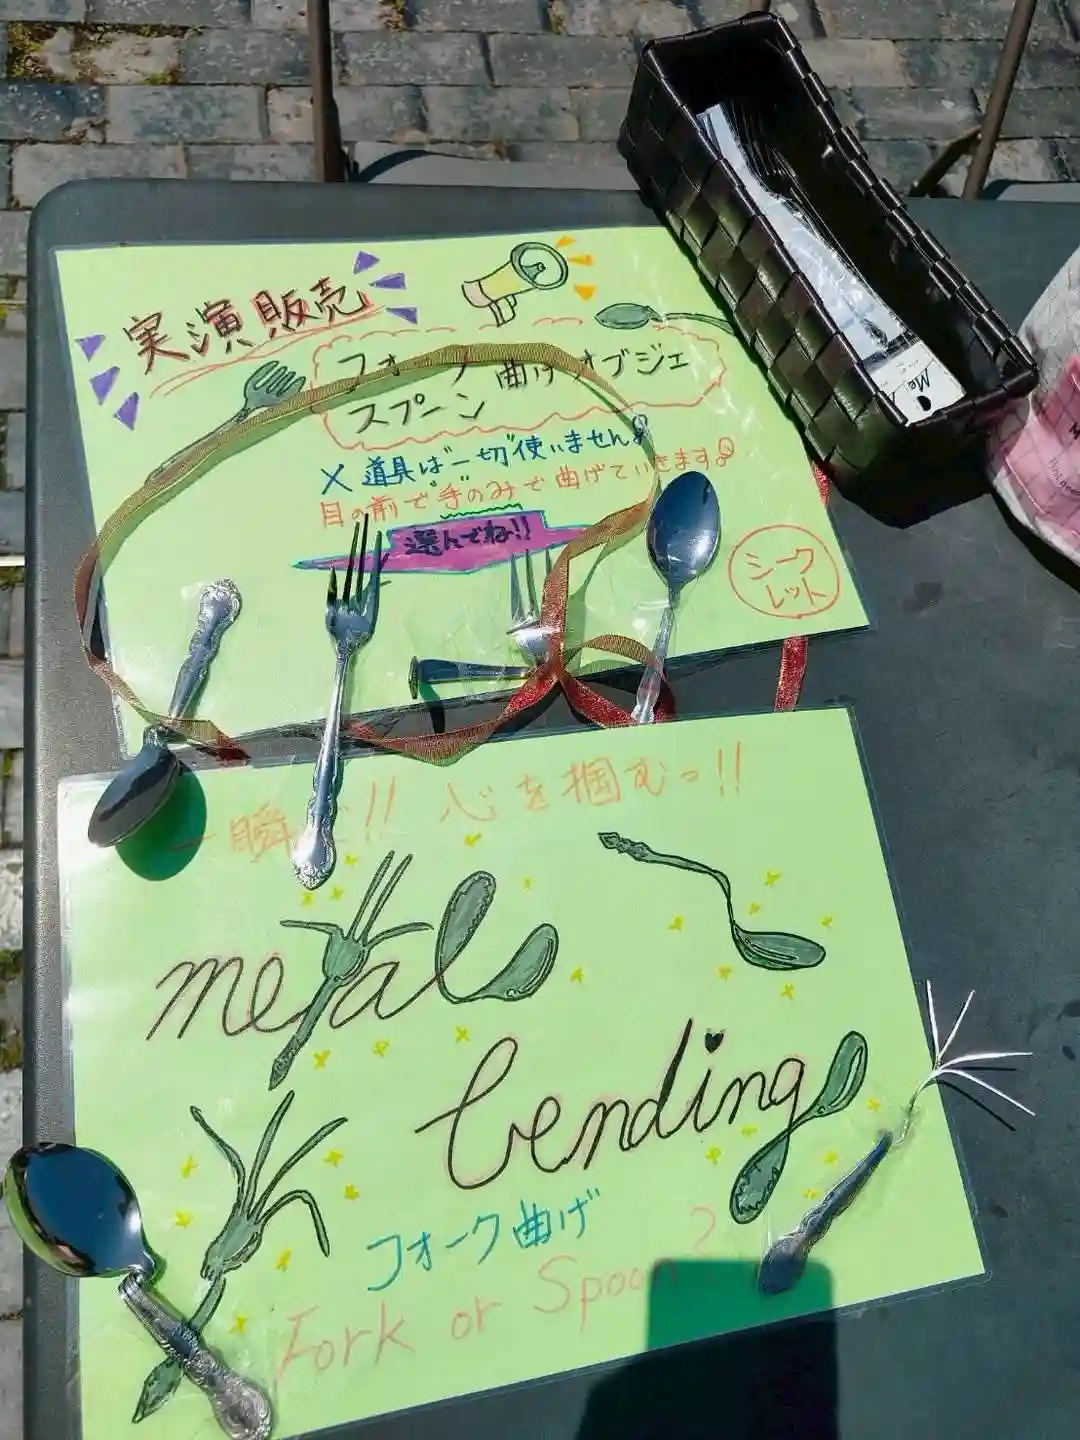 実演販売
フォーク
スプーン
曲げオブジェ
× 道具は一切使いません
目の前で手のみで曲げていきます
選んでね!!
シークレット
Me
一瞬で!! 心を掴むっ!!
metal
bending
フォーク曲げ
Fork or Spoon?